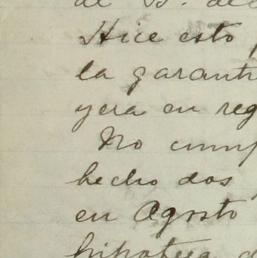 de B. de
Hice esto
la garant
yera en reg
No cump
hecho dos
en Agosto
hipoteca d